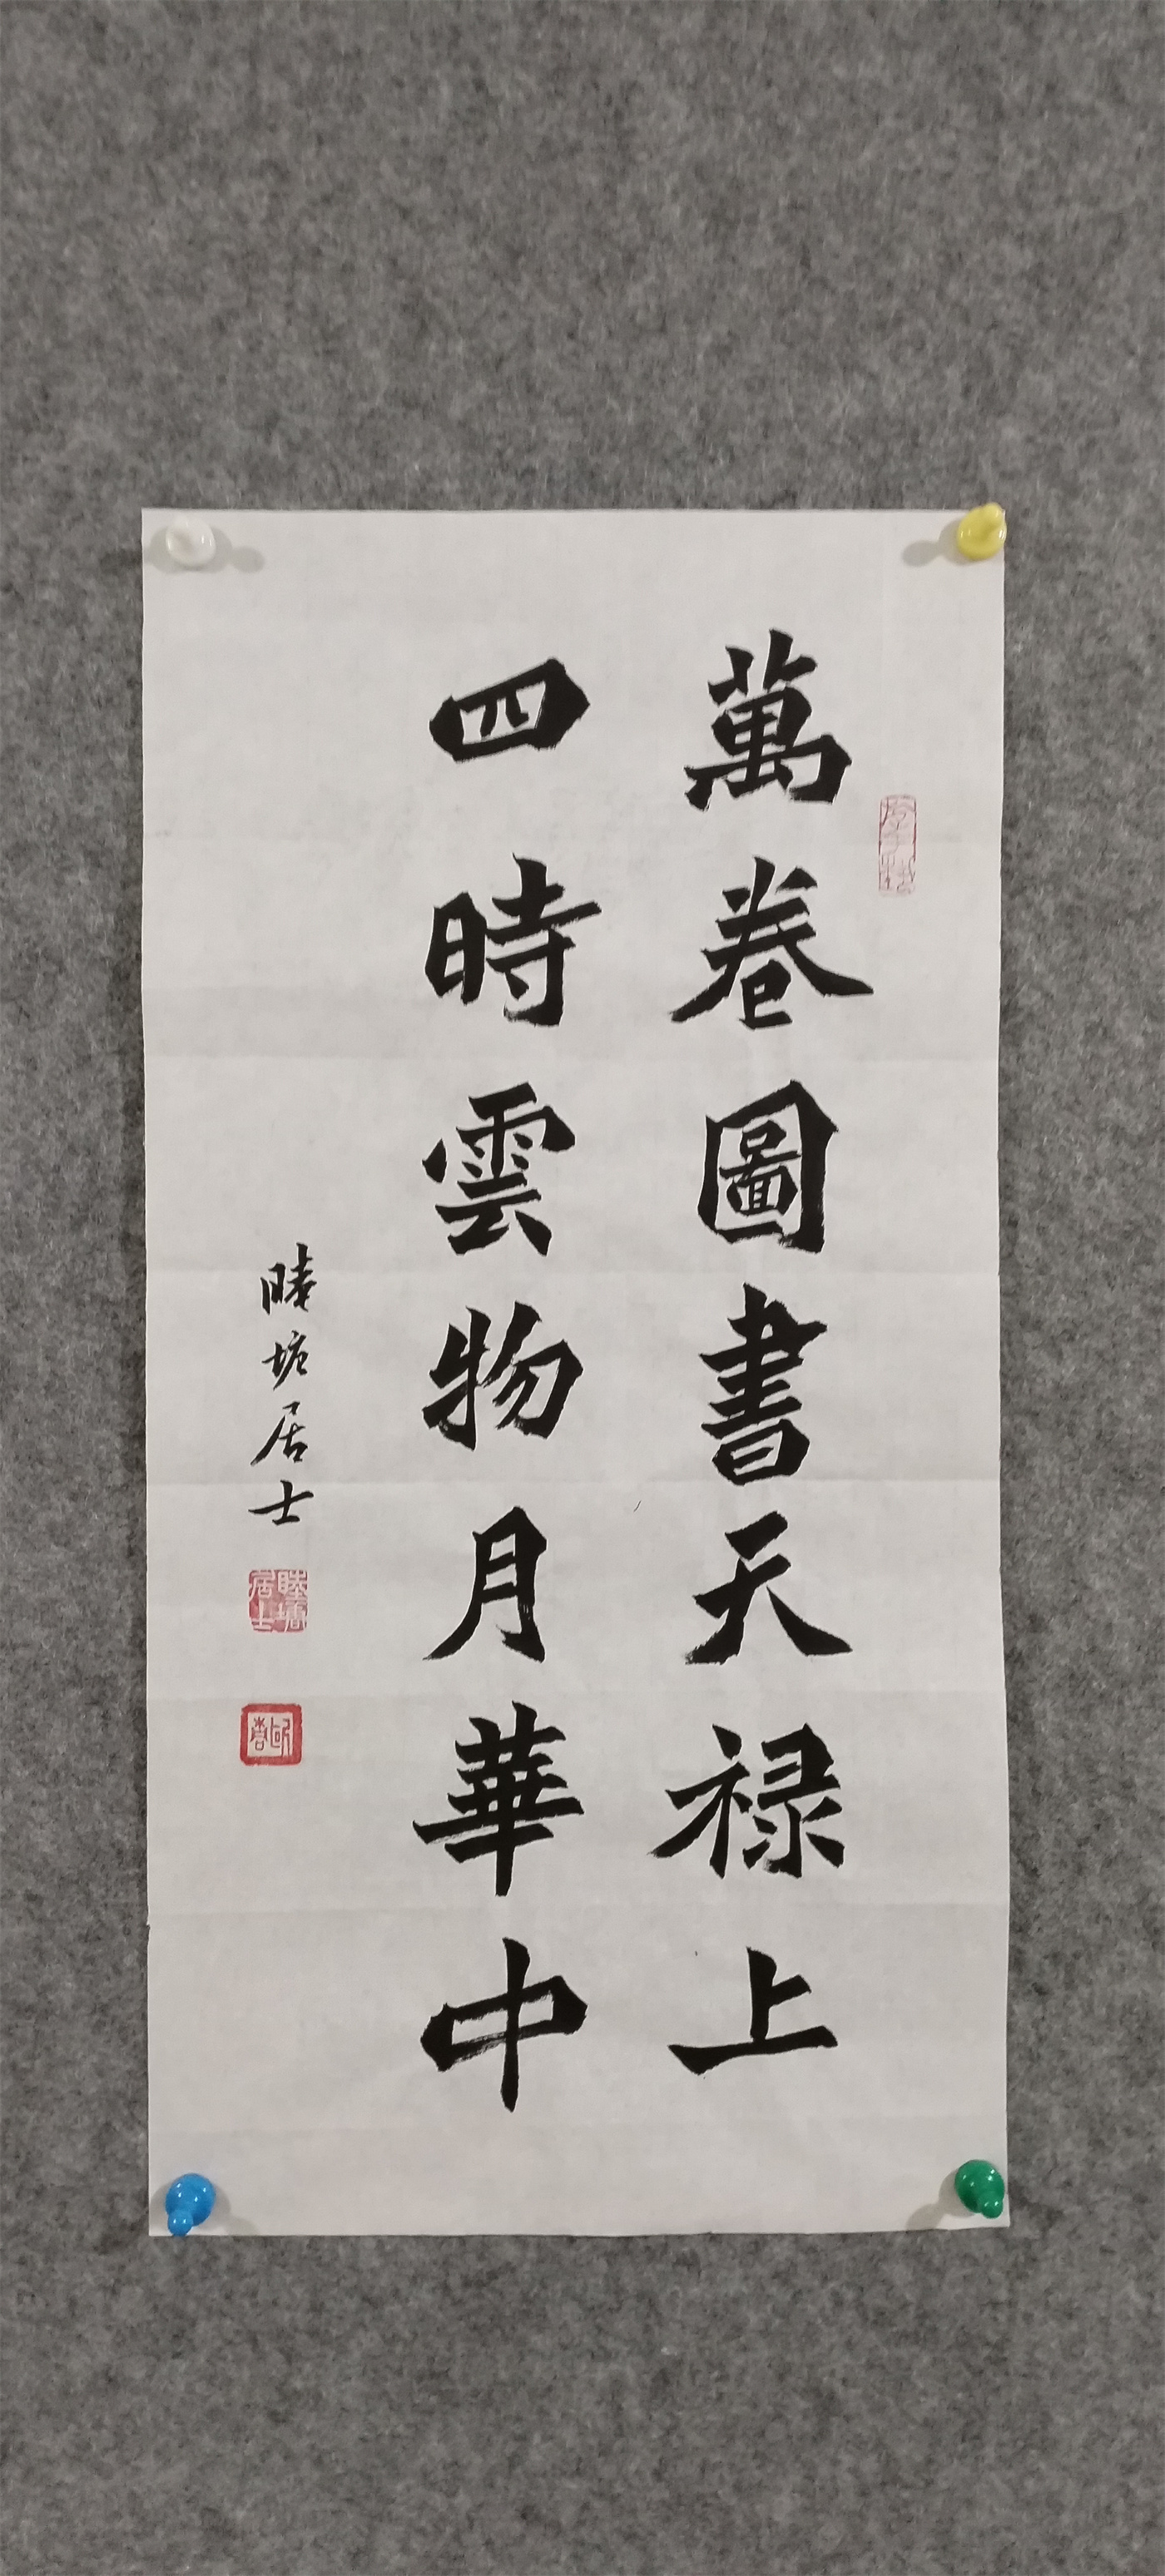 萬卷圖書天禄上
四時雲物月華中
睦坊居士